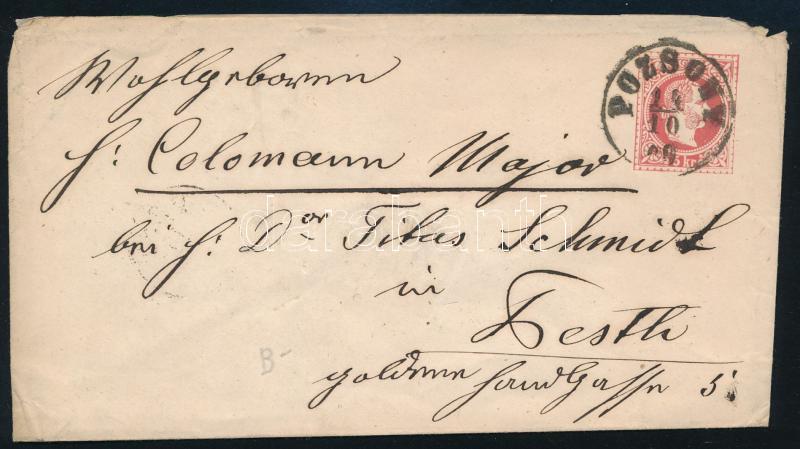 Wohlgeboren
H: Colomann Major
bei H: Dor Titus Schmidt
in
Pesth
goldene Handgasse 5.
POZSONY
10
5 kr
B-
darabanth